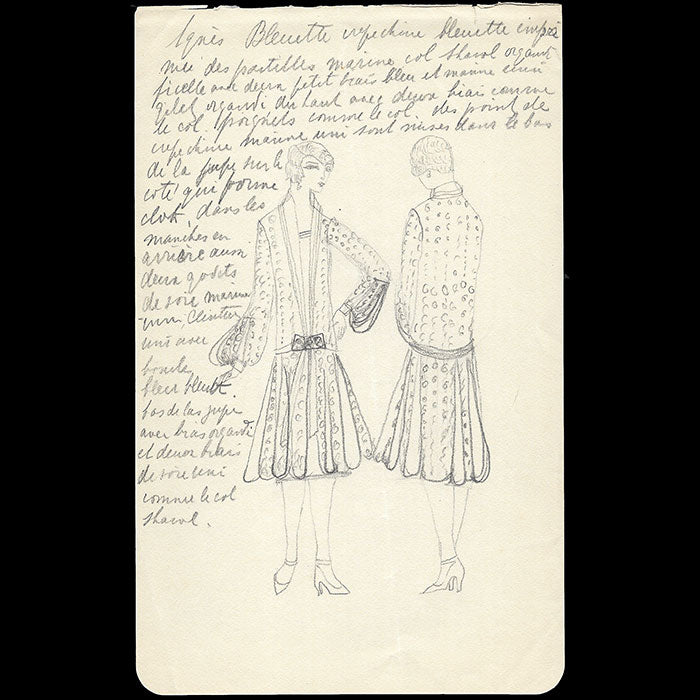 Agnès Bleuette crepe chine bleuette impri
mé des pastilles marine col shawl organdi
ficelle avec deux petit biais bleu et marine
gilet organdi du haut avec deux biais comme
le col. poignets comme le col. des point de
crepe chine marine uni sont mises dans le bas
de la jupe sur le
coté qui forme
cloch, dans les
manches en
arrière aussi
deux godets
de soie marine
uni, Ceinture
uni avec
boucle
bleu bleuet.
bas de la jupe
avec biais organdi
et deux biais
de soie uni
comme le col
shawl.